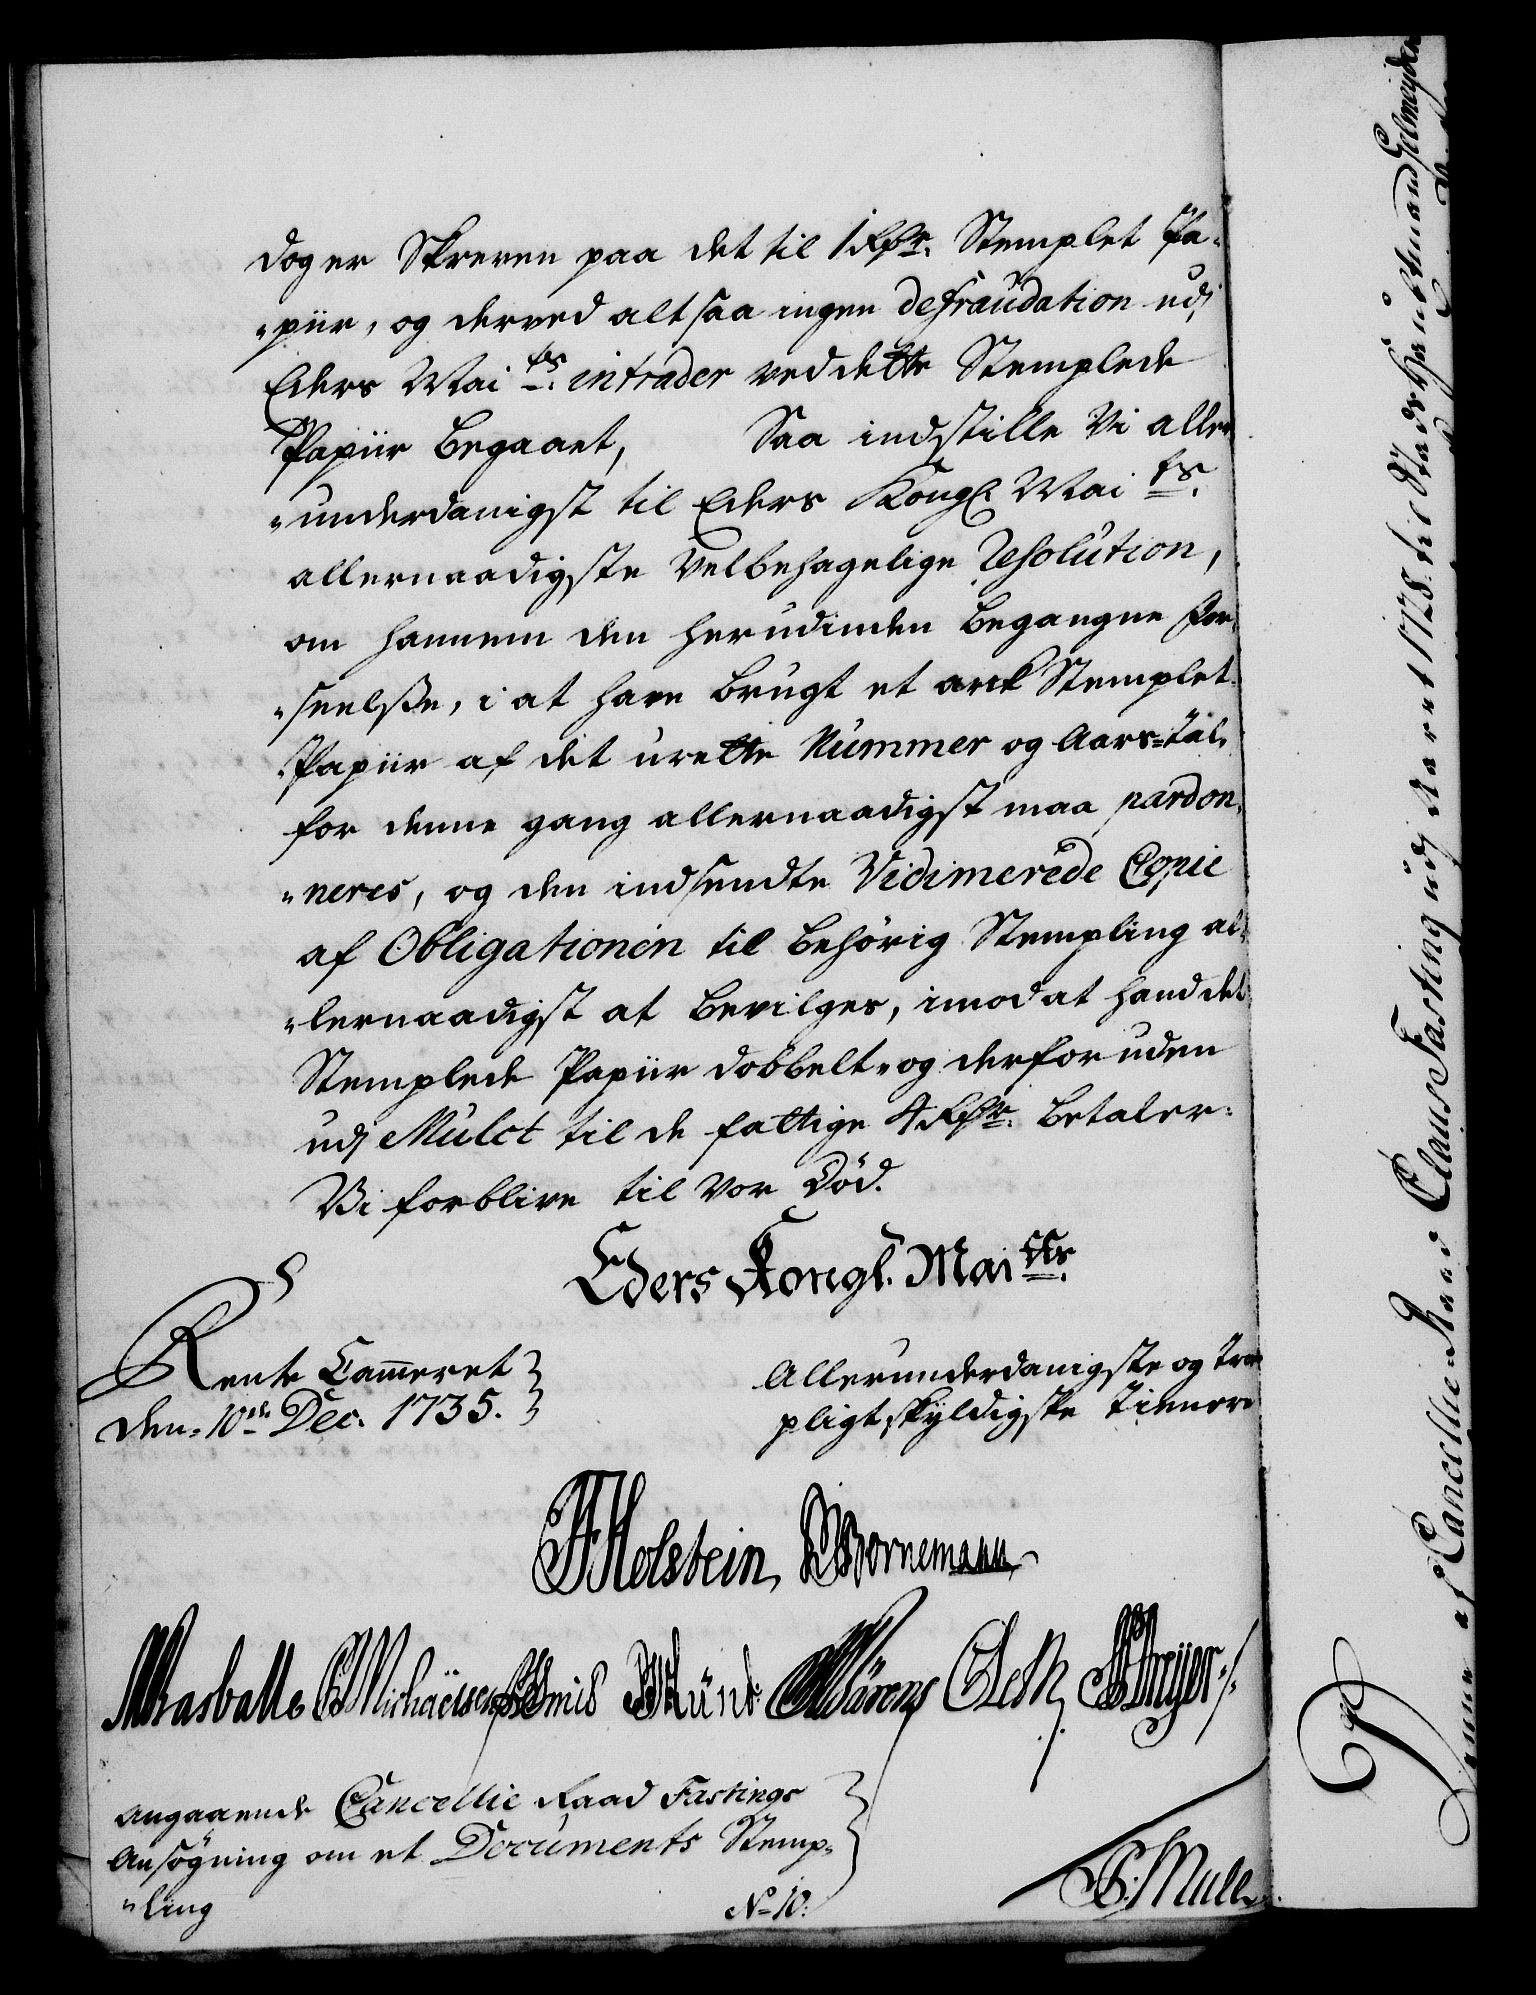 dog er Skreven paa det til 1 Rdr. Stemplet Pa-
„piir, og derved altsaa ingen defraudation udj
Eders Mai ts. intrader ved dette Stemplede
Papiir begaaet, Saa indstille Vi aller
„underdanigst til Eders Kongl Mai ts.
allernaadigste Velbehagelige Resolution,
om hannem den herudinden begangne for-
„seelsse, i at have brugt et ark Stemplet
Papiir af det urette Nummer og Aars-tal,
for denne gang allernaadigst maa pardon-
„neres, og den indsendte Vidimerede Copie
af Obligationen til behörig Stempling al-
„lernaadigst at bevilges, imod at hand det
Stemplede Papiir dobbelt, og derforuden
udj Mulct til de fattige 4 Rdr. betaler.
Vi forblive til Vor Död.
Eders Kongl. Mai tts.
Rente Cammeret
den 10de Dec. 1735.
Allerunderdanigste og
pligtskyldigste Tienere
Holstein, Bornemann
Michaëlsen
Angaaende Cancellie Raad Fastings
Ansögning om et Documents Stemp-
„ling
No 10.
af Cancellie Raad Claus Fasting udj Aaret 1728. til